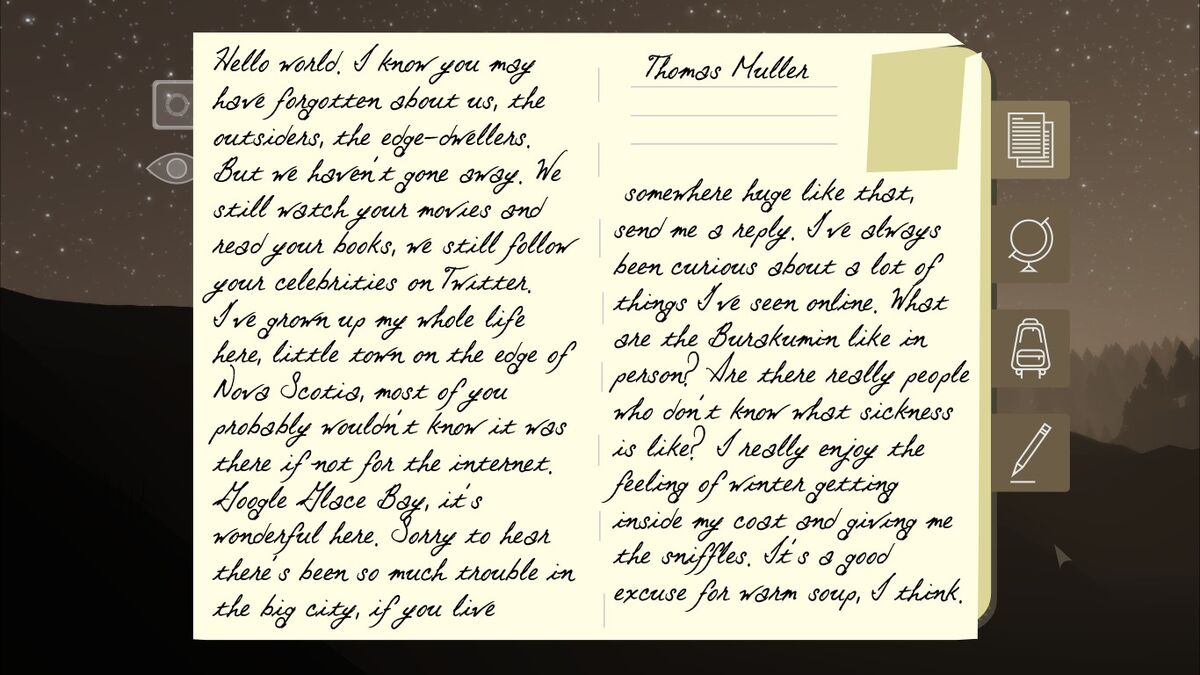 Hello world. I know you may
have forgotten about us, the
outsiders, the edge-dwellers.
But we haven't gone away. We
still watch your movies and
read your books, we still follow
your celebrities on Twitter.
I've grown up my whole life
here, little town on the edge of
Nova Scotia, most of you
probably wouldn't know it was
there if not for the internet.
Google Glace Bay, it's
wonderful here. Sorry to hear
there's been so much trouble in
the big city, if you live
Thomas Muller
somewhere huge like that,
send me a reply. I've always
been curious about a lot of
things I've seen online. What
are the Burakumin like in
person? Are there really people
who don't know what sickness
is like? I really enjoy the
feeling of winter getting
inside my coat and giving me
the sniffles. It's a good
excuse for warm soup, I think.